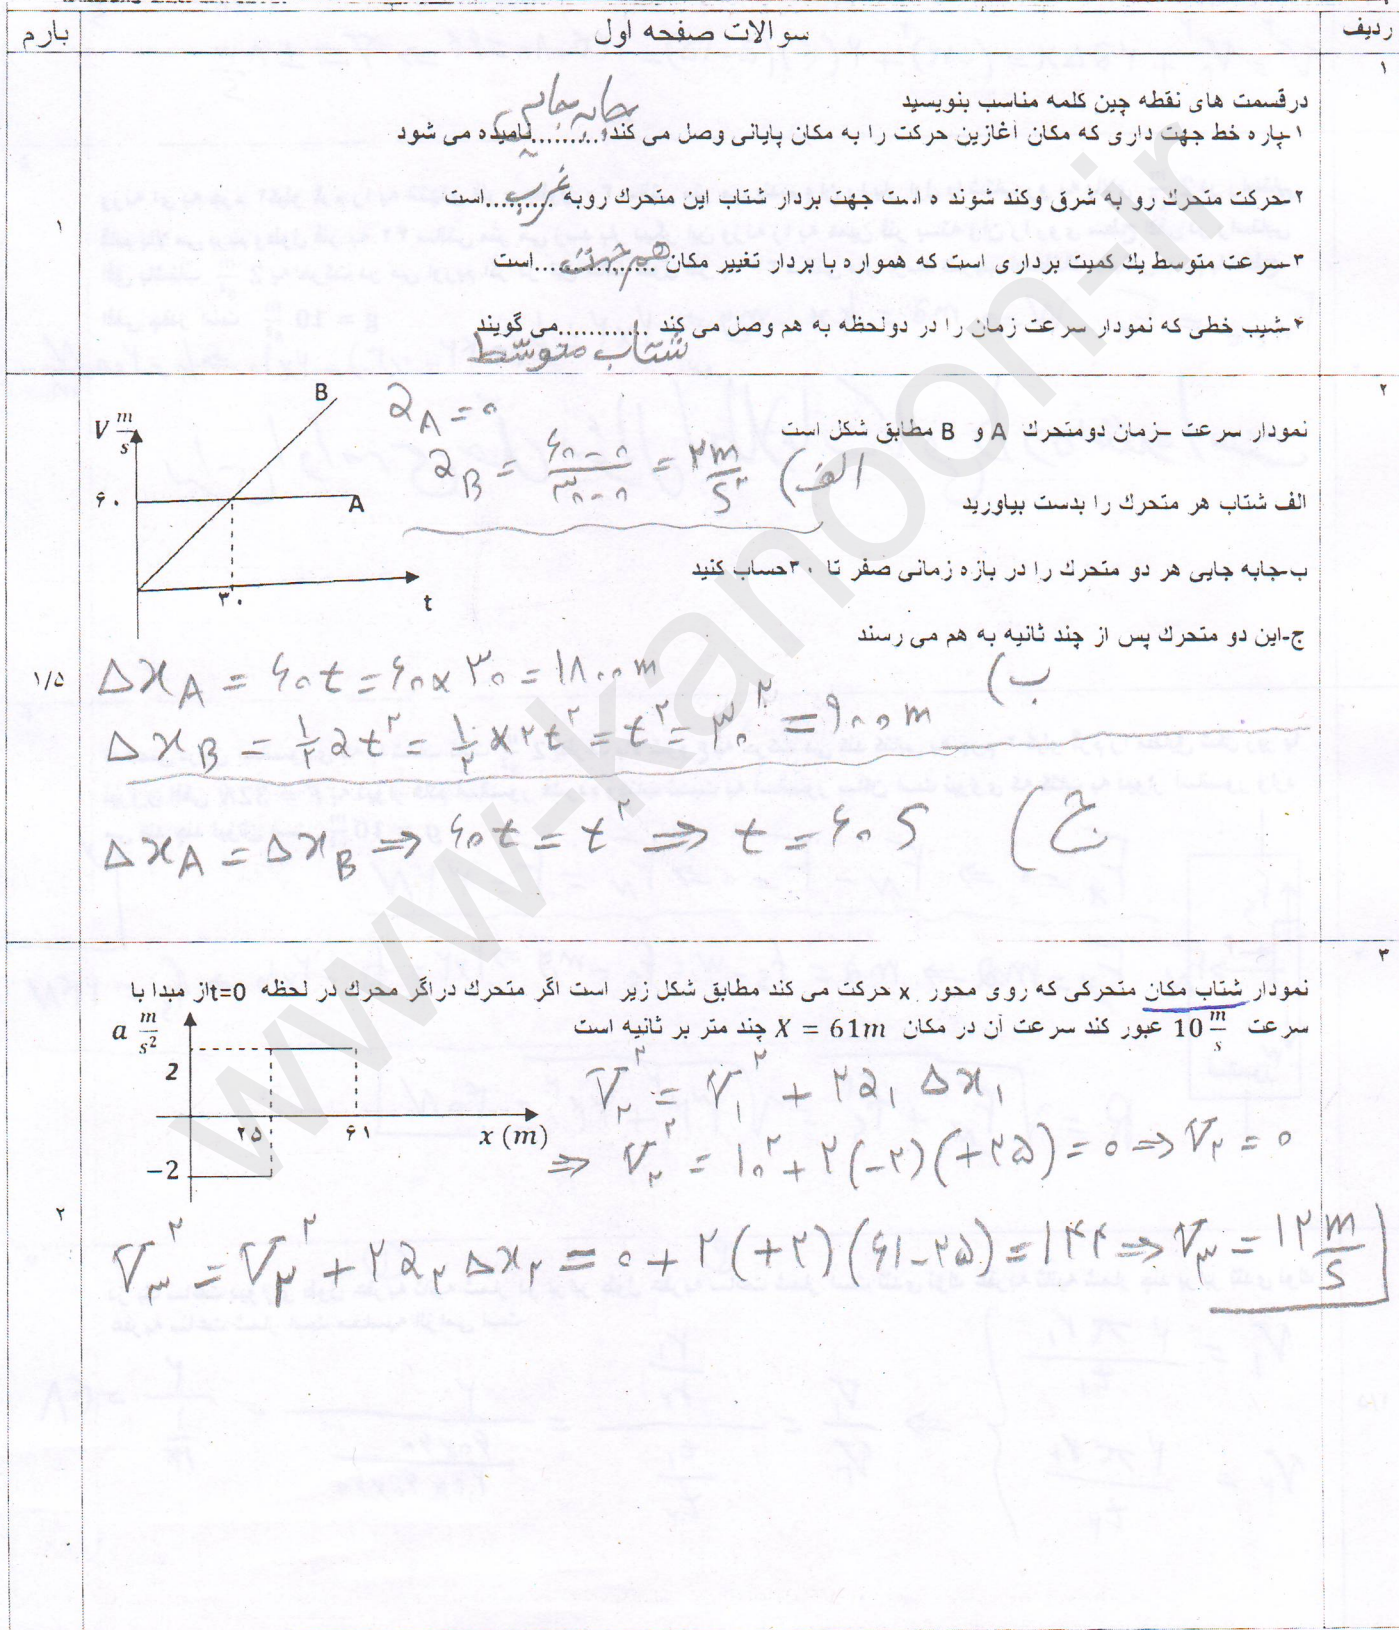 ردیف
سوالات صفحه اول
بارم
۱
درقسمت های نقطه چین کلمه مناسب بنویسید
۱-پاره خط جهت داری که مکان آغازین حرکت را به مکان پایانی وصل می کند، ......... نامیده می شود
جابه جایی
۲-حرکت متحرک رو به شرق وکند شوند ه است جهت بردار شتاب این متحرک روبه .........است
غرب
۱
۳-سرعت متوسط یك کمیت برداری است که همواره با بردار تغییر مکان ...............است
هم جهت
۴-شیب خطی که نمودار سرعت زمان را در دولحظه به هم وصل می کند ............می گویند
شتاب متوسط
۲
نمودار سرعت -زمان دومتحرك A و B مطابق شکل است
الف شتاب هر متحرك را بدست بیاورید
ب-جابه جایی هر دو متحرك را در بازه زمانی صفر تا ۳۰حساب کنید
ج-این دو متحرك پس از چند ثانیه به هم می رسند
V m/s
B
A
۶۰
۳۰
t
a_A = ۰
الف) a_B = (۶۰-۰)/(۳۰-۰) = ۲ m/s^۲
۱/۵
ب)
Δx_A = ۶۰t = ۶۰×۳۰ = ۱۸۰۰ m
Δx_B = ۱/۲ at^۲ = ۱/۲ × ۲t^۲ = t^۲ = ۳۰^۲ = ۹۰۰ m
ج) Δx_A = Δx_B ⇒ ۶۰t = t^۲ ⇒ t = ۶۰ s
۳
نمودار شتاب مکان متحرکی که روی محور x حرکت می کند مطابق شکل زیر است اگر متحرك دراگر محرك در لحظه t=0از مبدا با
سرعت 10 m/s عبور کند سرعت آن در مکان X = 61m چند متر بر ثانیه است
a m/s²
2
۲۵
۶۱
x (m)
−2
V_۲^۲ = V_۱^۲ + ۲a_۱ Δx_۱
⇒ V_۲^۲ = ۱۰^۲ + ۲(-۲)(+۲۵) = ۰ ⇒ V_۲ = ۰
۲
V_۳^۲ = V_۲^۲ + ۲a_۲ Δx_۲ = ۰ + ۲(+۲)(۶۱-۲۵) = ۱۴۴ ⇒ V_۳ = ۱۲ m/s
www-kanoon-ir